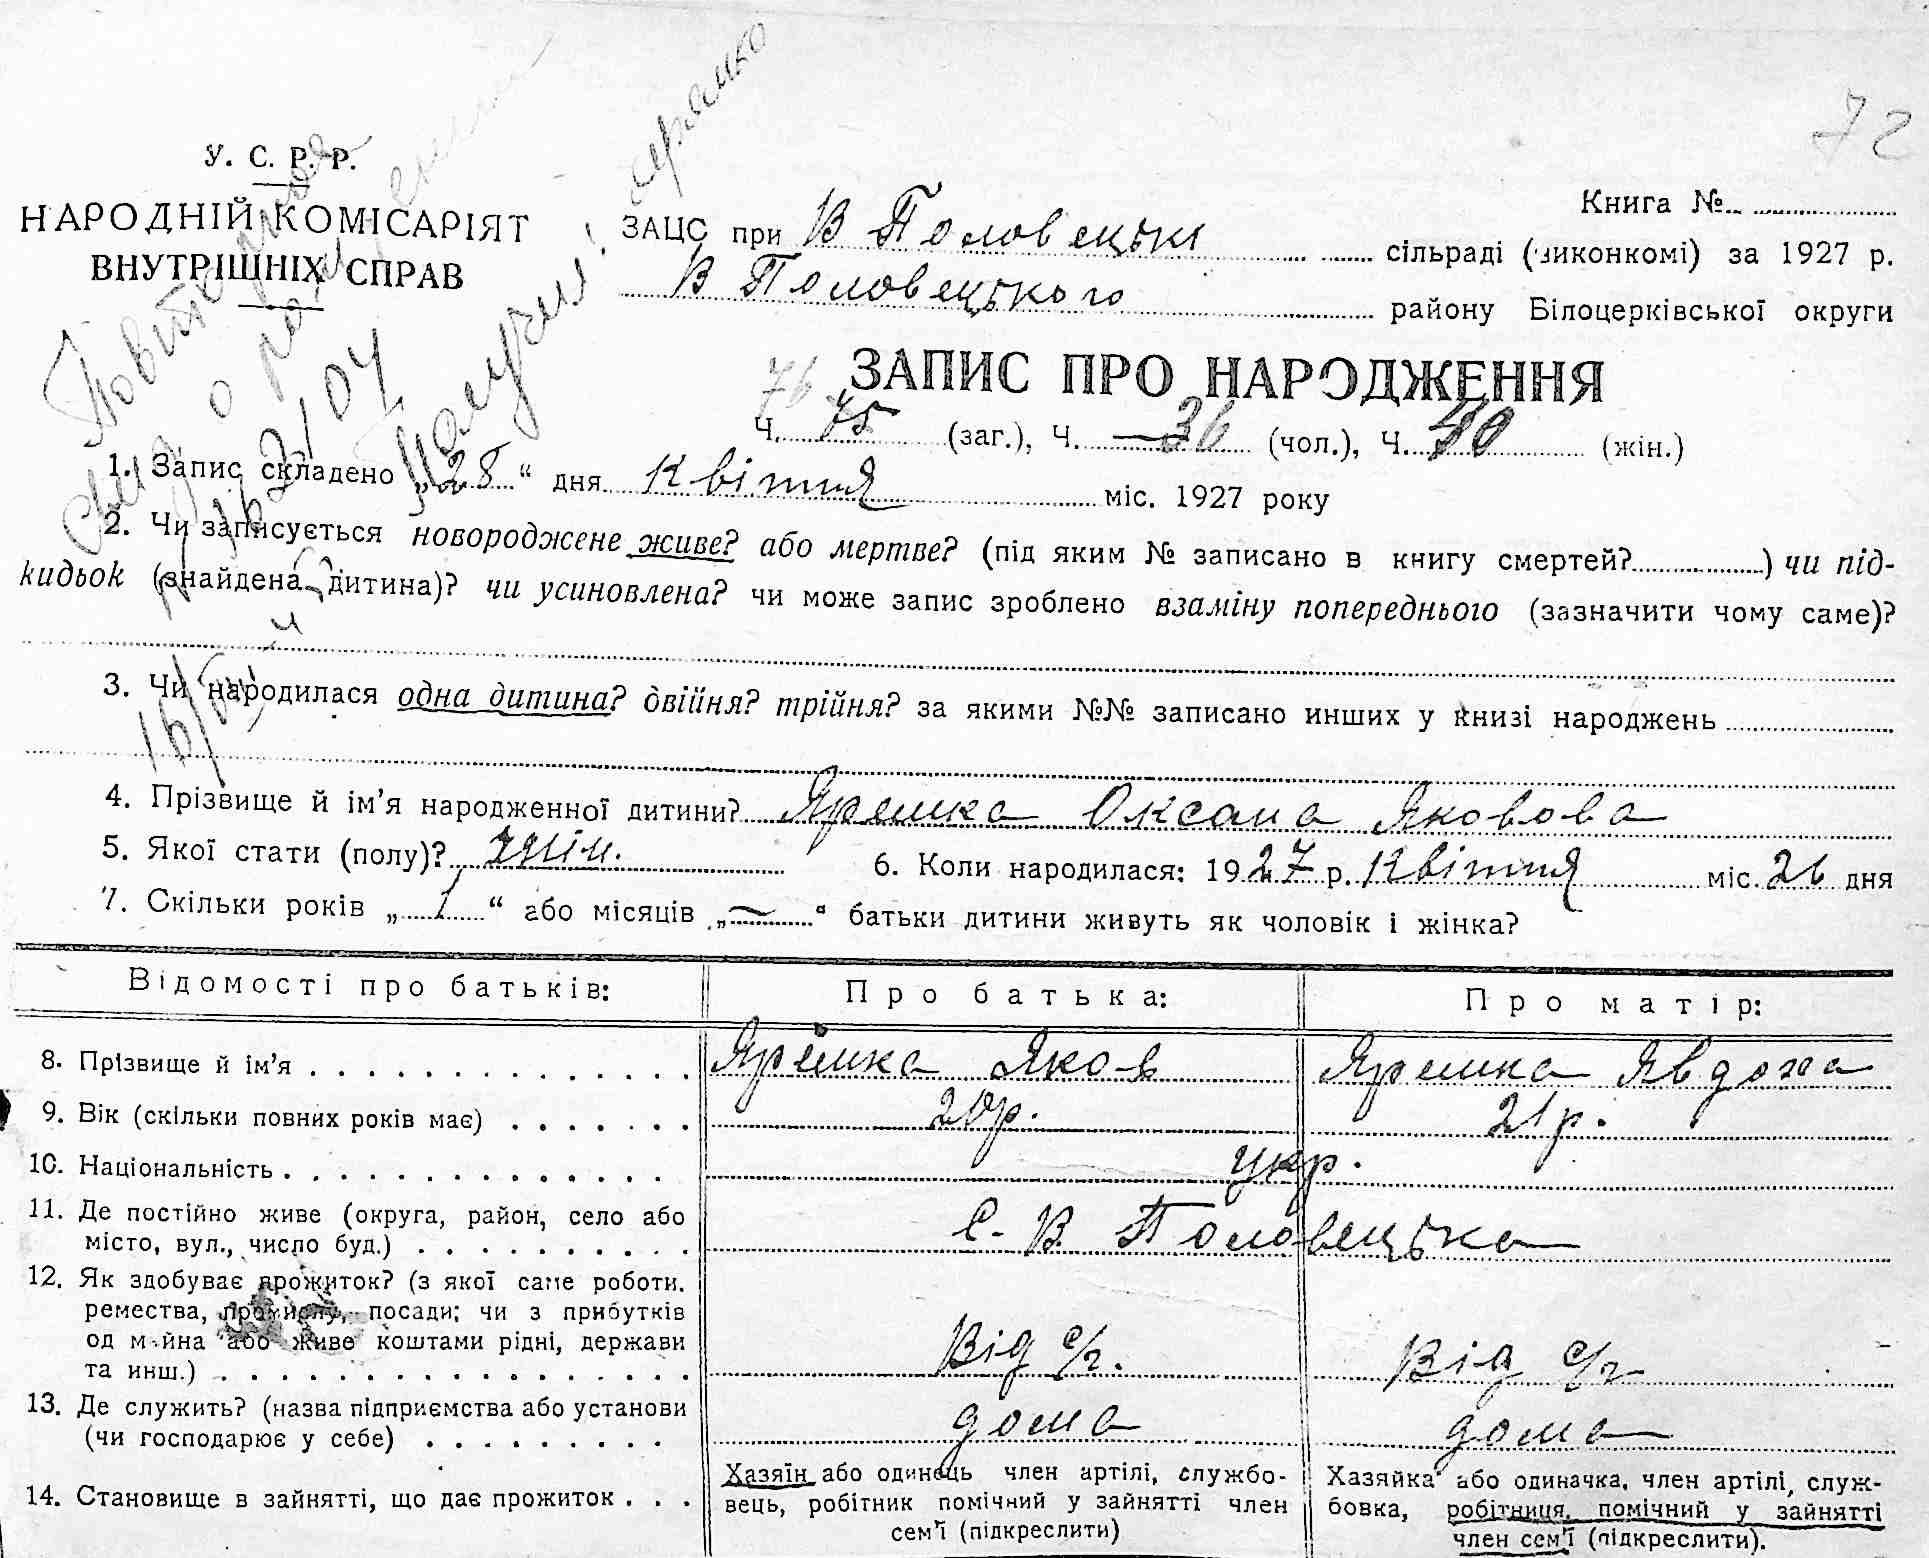 72
У. С. Р. Р.
НАРОДНІЙ КОМІСАРІЯТ
ВНУТРІШНІХ СПРАВ
Книга №
ЗАЦС при В Половецькі сільраді (виконкомі) за 1927 р.
В Половецького району Білоцерківської округи
Повторное
ЗАПИС ПРО НАРОДЖЕННЯ
76
Ч. 75 (заг.), Ч. — 36 (чол.), Ч. 40 (жін.)
1. Запис складено „28“ дня Квітня міс. 1927 року
2. Чи записується новороджене живе? або мертве? (під яким № записано в книгу смертей? ) чи під-
кидьок (знайдена дитина)? чи усиновлена? чи може запис зроблено взаміну попереднього (зазначити чому саме)?
3. Чи народилася одна дитина? двійня? трійня? за якими №№ записано инших у книзі народжень
4. Прізвище й ім’я народженної дитини? Яремка Оксана Яковова
5. Якої стати (полу)? жін. 6. Коли народилася: 1927 р. Квітня міс. 26 дня
7. Скільки років „1“ або місяців „—“ батьки дитини живуть як чоловік і жінка?
Відомості про батьків: Про батька: Про матір:
8. Прізвище й ім’я Яремка Яков Яремка Явдоха
9. Вік (скільки повних років має) 20р. 21р.
10. Національність укр.
11. Де постійно живе (округа, район, село або
місто, вул., число буд.) С. В. Половецька
12. Як здобуває прожиток? (з якої саме роботи,
ремества, промислу, посади; чи з прибутків
од майна або живе коштами рідні, держави
та инш.) Від с/г. Від с/г
13. Де служить? (назва підприємства або установи
(чи господарює у себе) дома дома
14. Становище в зайнятті, що дає прожиток
Хазяїн або одинець член артілі, службо-
вець, робітник помічний у зайнятті член
сем’ї (підкреслити)
Хазяйка або одиначка, член артілі, служ-
бовка, робітниця, помічний у зайнятті
член сем’ї (підкреслити).